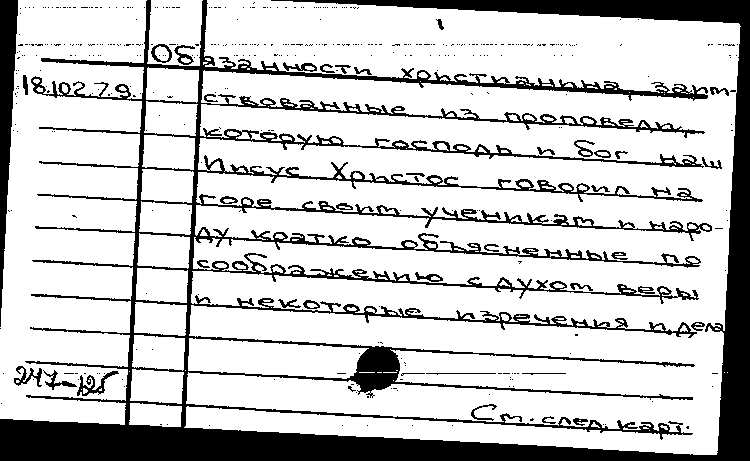 1
Обязанности христианина, заим-
18.102.7.9. ствованные из проповеди,
которую господь и бог наш
Иисус Христос говорил на
горе своим ученикам и наро-
ду, кратко объясненные по
соображению с духом веры
и некоторые изречения и дела
247-125
См. след. карт.